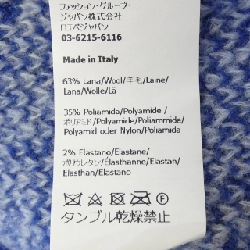 ファッション・グループ・
ジャパン株式会社
ロエベジャパン
03-6215-6116
Made in Italy
63% Lana/Wool/羊毛/Laine/
Lana/Wolle/Lã
35% Poliamida/Polyamide/
ポリアミド/Polyamide/Poliammide/
Polyamid oder Nylon/Poliamida
2% Elastano/Elastane/
ポリウレタン/Élasthanne/Elastan/
Elasthan/Elastano
タンブル乾燥禁止